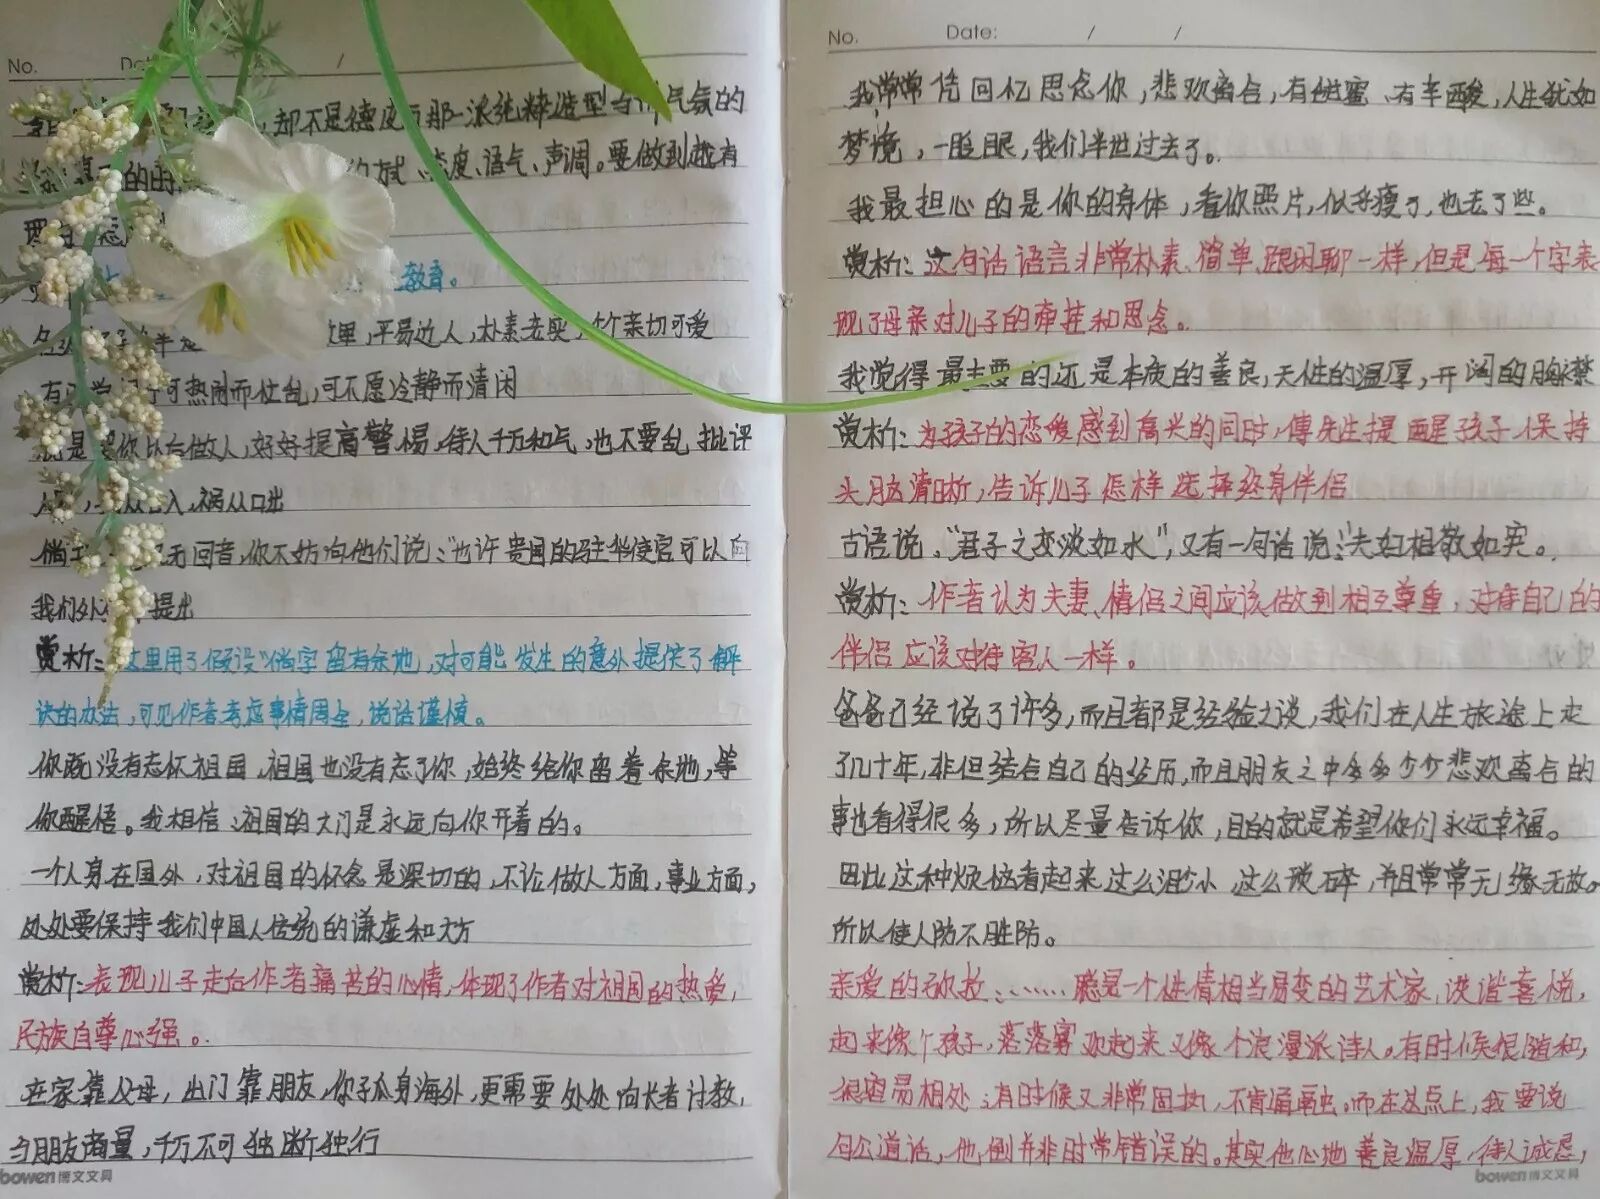 No.
Dat /
却不是德皮西那一派纯粹造型与讲气氛的
的方式、态度、语气、声调。要做到越有
理
教育。
里，平易近人，朴素老实，个个亲切可爱
可热闹而忙乱，可不愿冷静而清闲
就是要你以后做人，好好提高警惕，待人千万和气，也不要乱批评
入，祸从口出
倘 无回音，你不妨向他们说：“也许贵国的驻华使官可以向
我们外 提出
赏析：这里用了假设“倘字留有余地”，对可能发生的意外提供了解
决的办法，可见作者考虑事情周全，说话谨慎。
你既没有忘怀祖国，祖国也没有忘了你，始终给你留着余地，等
你醒悟。我相信：祖国的大门是永远向你开着的。
一个人身在国外，对祖国的怀念是深切的，不论做人方面，事业方面，
处处要保持我们中国人传统的谦虚和大方
赏析：表现儿子走后作者痛苦的心情，体现了作者对祖国的热爱，
民族自尊心强。
在家靠父母，出门靠朋友，你孑孤身海外，更需要处处向长者讨教，
与朋友商量，千万不可独断独行
bowen博文文具
No. Date: / /
我常常凭回忆思念你，悲欢离合，有甜蜜、有辛酸，人生犹如
梦境，一眨眼，我们半世过去了。
我最担心的是你的身体，看你照片，似乎瘦了，也老了些。
赏析：这句话语言非常朴素、简单、跟闲聊一样，但是每一个字表
现了母亲对儿子的牵挂和思念。
我觉得最主要的还是本质的善良，天性的温厚，开阔的胸襟
赏析：为孩子的恋爱感到高兴的同时，傅先生提醒孩子保持
头脑清晰，告诉儿子怎样选择终身伴侣
古语说，“君子之交淡如水”，又有一句话说：“夫妇相敬如宾。
赏析：作者认为夫妻、情侣之间应该做到相互尊重，对待自己的
伴侣应该对待客人一样。
爸爸已经说了许多，而且都是经验之谈，我们在人生旅途上走
了几十年，非但结合自己的经历，而且朋友之中多多少少悲欢离合的
事也看得很多，所以尽量告诉你，目的就是希望你们永远幸福。
因此这种烦恼看起来这么渺小，这么琐碎，并且常常无缘无故。
所以使人防不胜防。
亲爱的弥拉：……聪是一个性情相当易变的艺术家，诙谐喜悦，
起来像个孩子，落落寡欢起来又像个浪漫派诗人。有时候很随和，
很容易相处；有时候又非常固执，不肯通融。而在这点上，我要说
句公道话，他倒并非时常错误的。其实他心地善良温厚，待人诚恳，
bowen博文文具